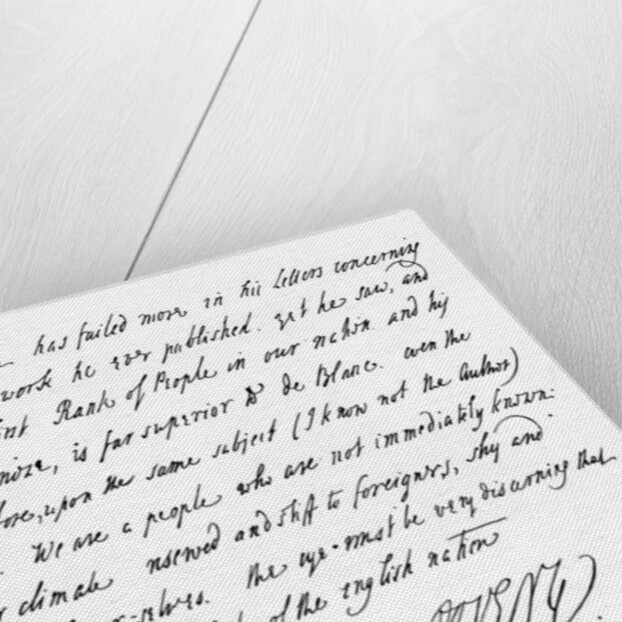 has failed more in his Letters concerning
work he ever published. yet he saw, and
Rank of People in our nation. and his
is far superior to de Blanc. even the
upon the same subject (I know not the Author)
We are a people who are not immediately known:
climate reserved and stiff to foreigners, shy and
-selves. The eye must be very discerning that
of the english nation